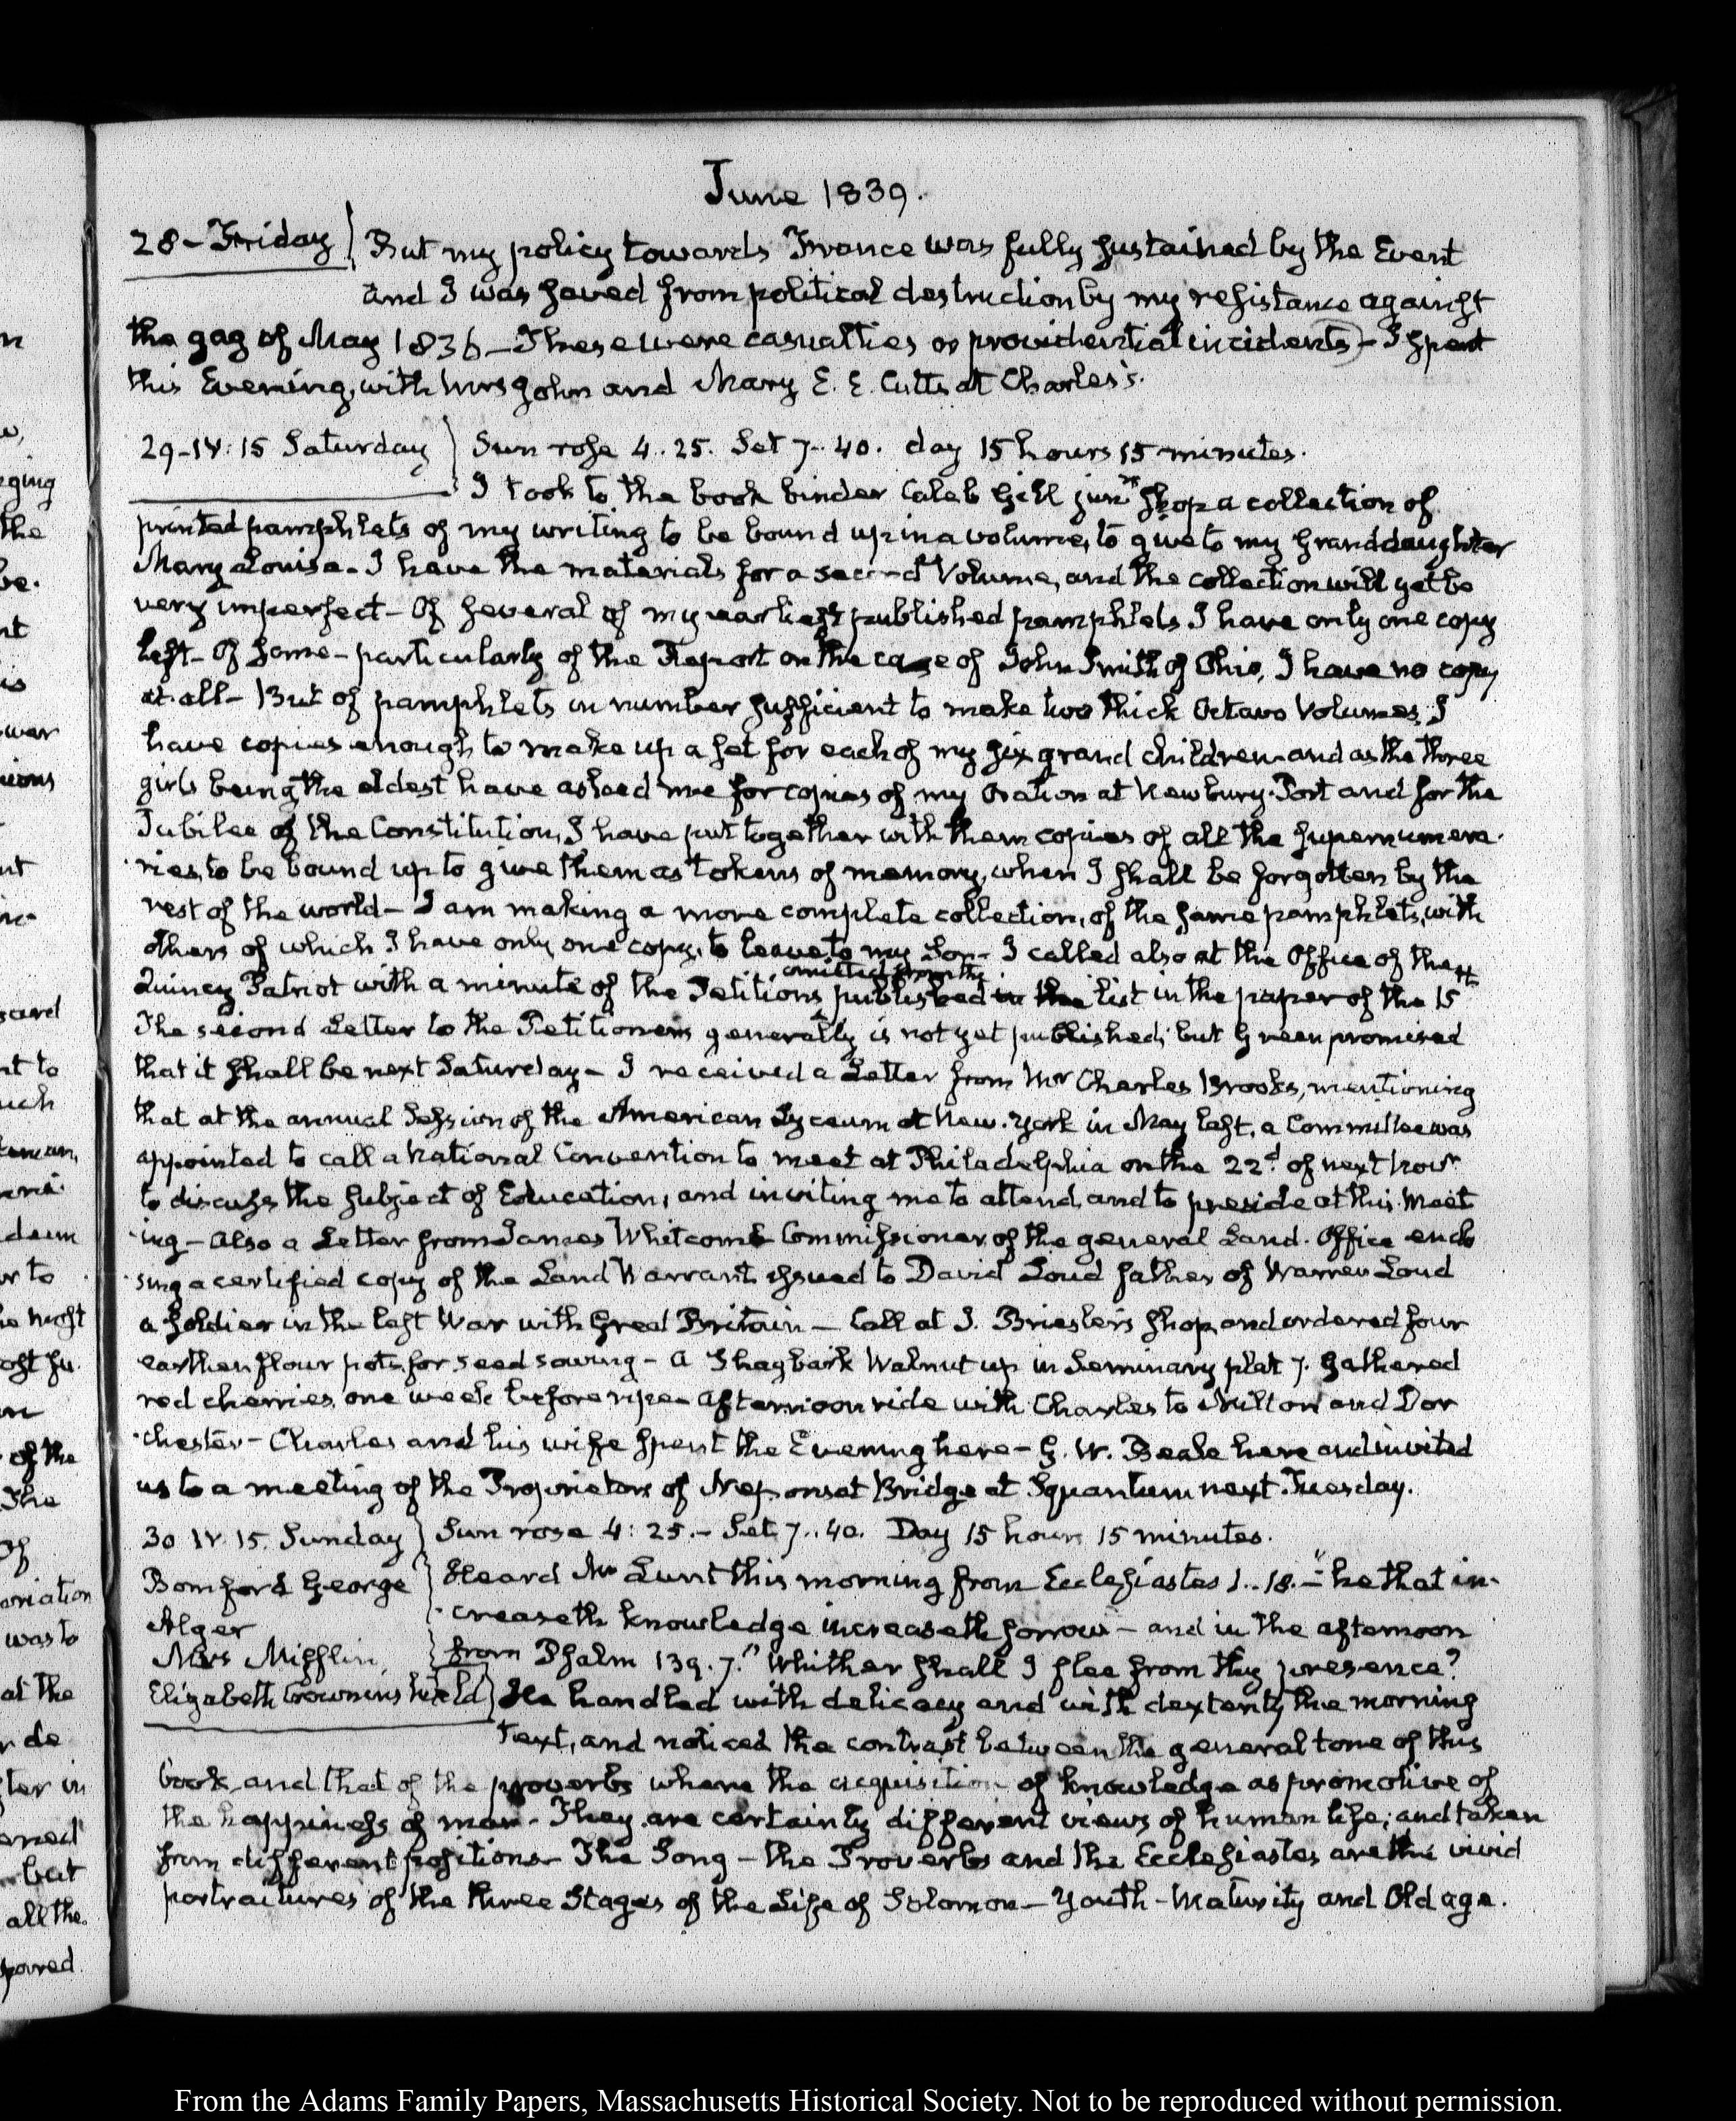 June 1839.
28 - Friday } But my policy towards France was fully sustained by the Event
and I was saved from political destruction by my resistance against
the gag of May 1836 - These were casualties or providential incidents - I spent
this Evening, with Mrs John and Mary E. E. Cutts at Charles's.
29 - IV: 15 Saturday } Sun rose 4..25. Set 7..40. day 15 hours 15 minutes.
I took to the book binder Caleb Gill junrs shop a collection of
printed pamphlets of my writing to be bound up in a volume, to give to my Granddaughter
Mary Louisa - I have the materials for a second Volume, and the collection will yet be
very imperfect - Of several of my earliest published pamphlets I have only one copy
left - Of some - particularly of the Report on the case of John Smith of Ohio, I have no copy
at all - But of pamphlets in number sufficient to make two thick Octavo Volumes, I
have copies enough to make up a set for each of my six grand children and as the three
girls being the eldest have asked me for copies of my Oration at Newbury-Port and for the
Jubilee of the Constitution, I have put together with them copies of all the supernumera-
ries, to be bound up to give them as tokens of memory, when I shall be forgotten by the
rest of the world - I am making a more complete collection, of the same pamphlets, with
others of which I have only one copy, to leave to my Son - I called also at the Office of the
Quincy Patriot with a minute of the Petitions omitted from the published in the list in the paper of the 15th
The second Letter to the Petitioners generally is not yet published; but Green promised
that it shall be next Saturday - I received a Letter from Mr Charles Brooks, mentioning
that at the annual Session of the American Lyceum at New-York in May last, a Committee was
appointed to call a National Convention to meet at Philadelphia on the 22d of next Novr
to discuss the subject of Education, and inviting me to attend and to preside at this Meet
-ing - Also a Letter from James Whitcomb Commissioner of the general Land-Office enclo
-sing a certified copy of the Land Warrant issued to David Loud father of Warren Loud
a Soldier in the last War with Great Britain - Call at J. Briesler's shop, and ordered four
earthen flour pots for seed sowing - A Shagbark Walnut up in Seminary plat 7. Gathered
red cherries, one week before ripe - Afternoon ride with Charles to Milton and Dor
-chester - Charles and his wife spent the Evening here - G. W. Beale here and invited
us to a meeting of the Proprietors of Neponset Bridge at Squantum next Tuesday.
30 IV. 15. Sunday } Sun rose 4: 25. - Set 7..40. Day 15 hours 15 minutes.
Bomford George } Heard Mr Lunt this morning from Ecclesiastes 1..18. - "he that in-
Alger } -creaseth knowledge increaseth sorrow - and in the afternoon
Mrs Mifflin } from Psalm 139.7. "Whither shall I flee from thy presence?
Elizabeth Crowninshield } He handled with delicacy and with dexterity the morning
Text, and noticed the contrast between the general tone of this
book and that of the proverbs where the acquisition of knowledge as promotive of
the happiness of man - They are certainly different views of human life; and taken
from different positions - The Song - the Proverbs and the Ecclesiastes are the vivid
portraitures of the three Stages of the Life of Solomon - Youth - Maturity and Old age.
From the Adams Family Papers, Massachusetts Historical Society. Not to be reproduced without permission.